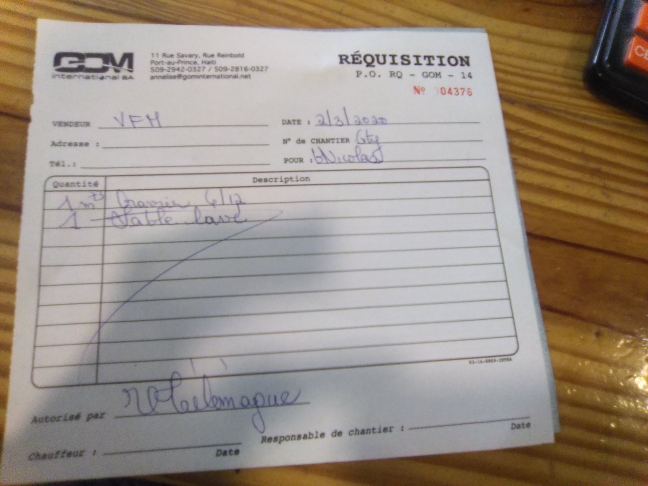 GOM
international SA
11 Rue Savary, Rue Reinbold
Port-au-Prince, Haïti
509-2942-0327 / 509-2816-0327
annelise@gominternational.net
RÉQUISITION
P.O. RQ - GOM - 14
Nº 04376
VENDEUR VFM
DATE : 2/3/2020
Adresse :
Nº de CHANTIER
Tél.:
POUR : Nicolas
Quantité Description
1 m Gravier 6/12
1 Sable lavé
Autorisé par
Responsable de chantier :
Date
Chauffeur :
Date